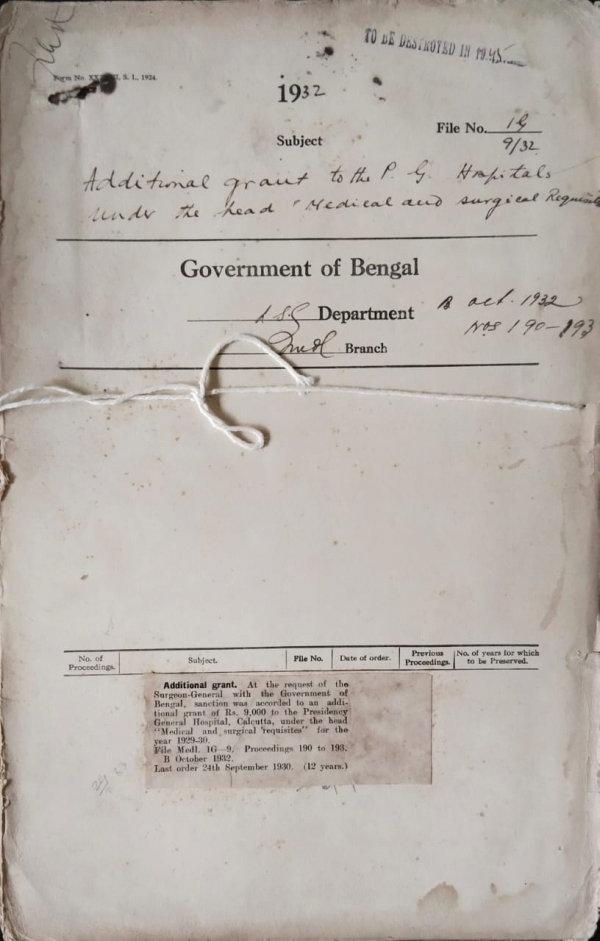 TO BE DESTROYED IN 1945
S. I., 1924.
1932
File No. 1G
9/32
Subject
Additional grant to the P. G. Hospitals
under the head "Medical and surgical Requisites
Government of Bengal
Department
B Oct. 1932
Nos 190-193
Medl Branch
No. of Proceedings.
Subject.
File No.
Date of order.
Previous Proceedings.
No. of years for which to be Preserved.
Additional grant. At the request of the
Surgeon-General with the Government of
Bengal, sanction was accorded to an addi-
tional grant of Rs. 9,000 to the Presidency
General Hospital, Calcutta, under the head
"Medical and surgical requisites" for the
year 1929-30.
File Medl. 1G—9, Proceedings 190 to 193,
B October 1932.
Last order 24th September 1930. (12 years.)